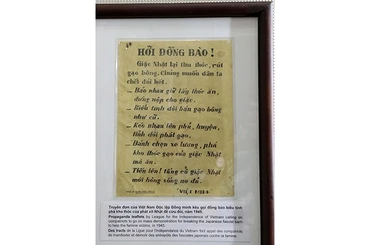 HỠI ĐỒNG BÀO!
Giặc Nhật lại thu thóc, rút
gạo bông. Chúng muốn dân ta
chết đói hết.
— Bảo nhau giữ lấy thóc ăn,
đừng nộp cho giặc.
— Biểu tình đòi bán gạo bông
như cũ.
— Kéo nhau lên phủ, huyện,
tỉnh đòi phát gạo.
— Đánh chẹn xe lương, phá
kho thóc gạo của giặc Nhật
mà ăn.
— Tiến lên! tổng cổ giặc Nhật
mới hòng sống no đủ.
VIỆT MINH
Truyền đơn của Việt Nam Độc lập Đồng minh kêu gọi đồng bào biểu tình
phá kho thóc của phát xít Nhật để cứu đói, năm 1945.
Propaganda leaflets by League for the Independence of Vietnam calling on
compatriots to go on mass demonstration for breaking the Japanese Fascist barn
to help the famine victims, in 1945.
Des tracts de la Ligue pour l'Indépendance du Vietnam font appel des compatriotes
de manifester et démolir des entrepôts des fascistes japonais contre la famine.